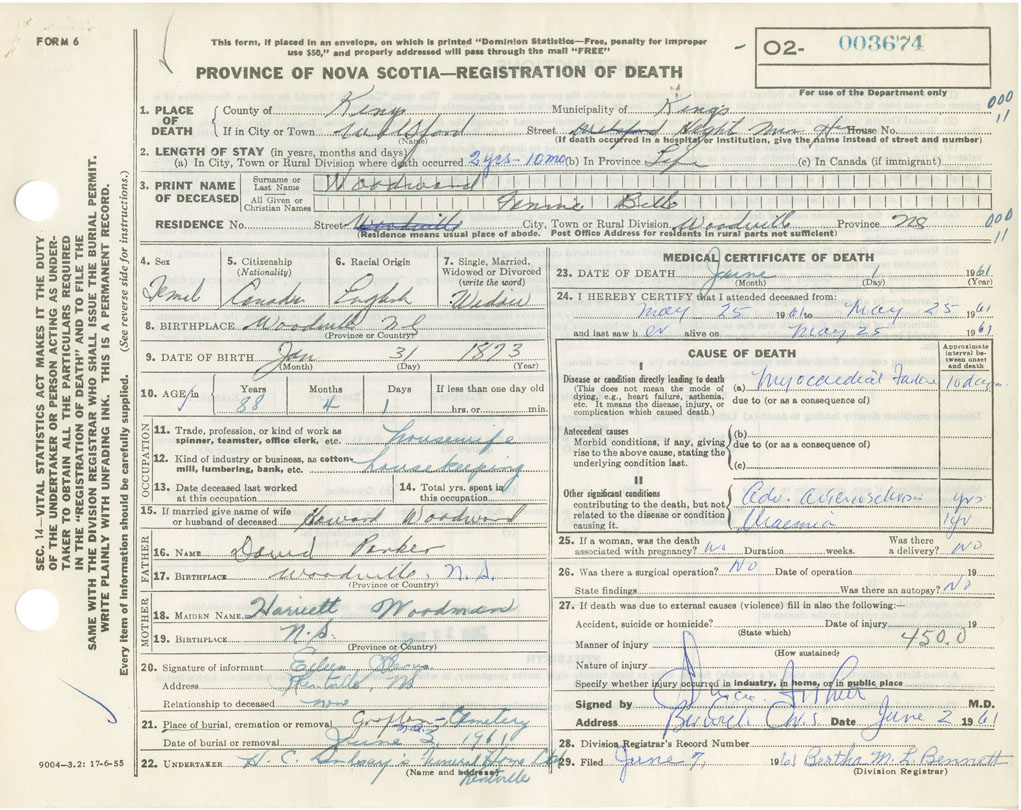 FORM 6
This form, if placed in an envelope, on which is printed "Dominion Statistics—Free, penalty for improper
use $50," and properly addressed will pass through the mail "FREE"
PROVINCE OF NOVA SCOTIA—REGISTRATION OF DEATH
O2- 003674
For use of the Department only
000
11
1. PLACE OF DEATH
County of Kings Municipality of Kings
If in City or Town Street Night House No.
(Name) (If death occurred in a hospital or institution, give the name instead of street and number)
2. LENGTH OF STAY (in years, months and days)
(a) In City, Town or Rural Division where death occurred 2 yrs - 10 mo (b) In Province Life (c) In Canada (if immigrant)
3. PRINT NAME OF DECEASED
Surname or Last Name Woodward
All Given or Christian Names Bell
RESIDENCE No. Street Woodville City, Town or Rural Division Woodville Province NS
(Residence means usual place of abode. Post Office Address for residents in rural parts not sufficient)
000
11
4. Sex Femal
5. Citizenship (Nationality) Canada
6. Racial Origin English
7. Single, Married, Widowed or Divorced (write the word) Widow
8. BIRTHPLACE Woodville NS
(Province or Country)
9. DATE OF BIRTH Jan 31 1873
(Month) (Day) (Year)
10. AGE in Years 88 Months 4 Days 1 If less than one day old hrs. or min.
OCCUPATION
11. Trade, profession, or kind of work as spinner, teamster, office clerk, etc. housewife
12. Kind of industry or business, as cotton-mill, lumbering, bank, etc. housekeeping
13. Date deceased last worked at this occupation
14. Total yrs. spent in this occupation
15. If married give name of wife or husband of deceased Howard Woodward
FATHER
16. NAME David Parker
17. BIRTHPLACE Woodville, N.S.
(Province or Country)
MOTHER
18. MAIDEN NAME Harriett Woodman
19. BIRTHPLACE N.S.
(Province or Country)
20. Signature of informant Eileen
Address Kentville, NS
Relationship to deceased none
21. Place of burial, cremation or removal Grafton - Cemetery
Date of burial or removal June 3 1961
22. UNDERTAKER H. C. Lindsay's Funeral Home Ltd
(Name and address) Kentville
MEDICAL CERTIFICATE OF DEATH
23. DATE OF DEATH June 1 1961
(Month) (Day)
24. I HEREBY CERTIFY that I attended deceased from:
May 25 1961 to May 25 1961
and last saw her alive on May 25 1961
CAUSE OF DEATH
Approximate interval between onset and death
I
Disease or condition directly leading to death (a) Myocardial Failure 10 days
(This does not mean the mode of dying, e.g., heart failure, asthenia, etc. It means the disease, injury, or complication which caused death.)
due to (or as a consequence of)
Antecedent causes
Morbid conditions, if any, giving rise to the above cause, stating the underlying condition last.
(b)
due to (or as a consequence of)
(c)
II
Other significant conditions contributing to the death, but not related to the disease or condition causing it.
Adv. Arteriosclerosis yrs
Uraemia 1 yr
25. If a woman, was the death associated with pregnancy? No Duration weeks. Was there a delivery? NO
26. Was there a surgical operation? NO Date of operation 19
State findings Was there an autopsy? No
27. If death was due to external causes (violence) fill in also the following:—
Accident, suicide or homicide? Date of injury 19
(State which)
Manner of injury 450.0
(How sustained)
Nature of injury
Specify whether injury occurred in industry, in home, or in public place
Signed by M.D.
Address Berwick N.S. Date June 2 1961
28. Division Registrar's Record Number
29. Filed June 7, 1961 Bertha M. L. Bennett
(Division Registrar)
SEC. 14—VITAL STATISTICS ACT MAKES IT THE DUTY
OF THE UNDERTAKER OR PERSON ACTING AS UNDER-
TAKER TO OBTAIN ALL THE PARTICULARS REQUIRED
IN THE "REGISTRATION OF DEATH" AND TO FILE THE
SAME WITH THE DIVISION REGISTRAR WHO SHALL ISSUE THE BURIAL PERMIT.
WRITE PLAINLY WITH UNFADING INK. THIS IS A PERMANENT RECORD.
Every item of information should be carefully supplied. (See reverse side for instructions.)
9004-3.2: 17-6-55